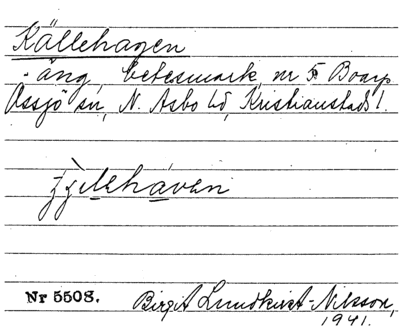 Källehagen
- äng, betesmark, nr 5 Boarp
Össjö sn, N. Åsbo hd, Kristianstads l.
Nr 5508.
Birgit Lundkvist-Nilsson,
1941.